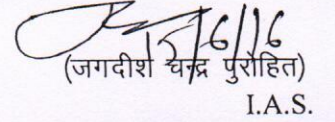 5/6/16
(जगदीश चन्द्र पुरोहित)
I.A.S.